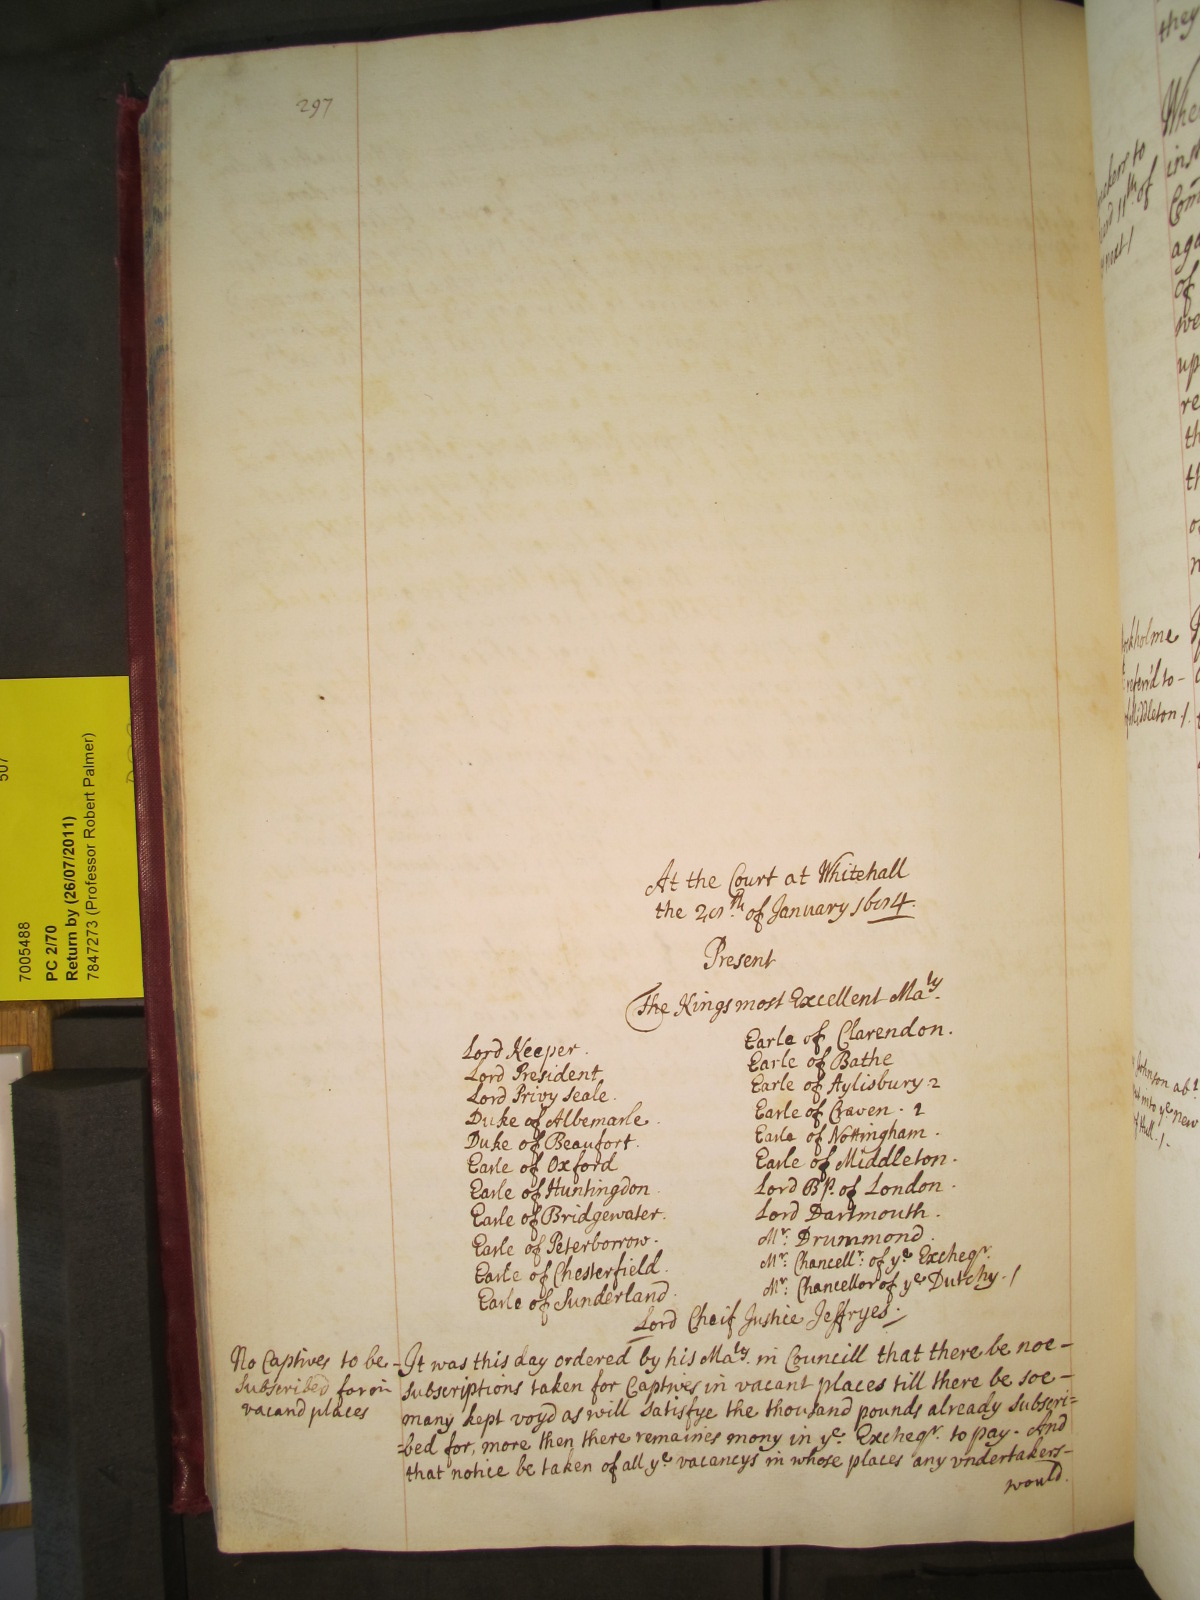 297
At the Court at Whitehall
the 28th. of January 1684.
Present
The Kings most Excellent Maty.
Lord Keeper.
Lord President
Lord Privy Seale.
Duke of Albemarle.
Duke of Beaufort.
Earle of Oxford
Earle of Huntingdon
Earle of Bridgewater.
Earle of Peterborrow.
Earle of Chesterfield.
Earle of Sunderland.
Earle of Clarendon.
Earle of Bathe
Earle of Aylisbury: 2
Earle of Craven. 1
Earle of Nottingham.
Earle of Middleton.
Lord Bp. of London.
Lord Dartmouth.
Mr: Drummond.
Mr: Chancellr: of ye Excheqr.
Mr: Chancellor of ye Dutchy./
Lord Cheif Justice Jeffryes./
No Captives to be
Subscribed for in
vacand places
It was this day ordered by his Maty. in Councill that there be noe
subscriptions taken for Captives in vacant places till there be soe
many kept voyd as will satisfye the thousand pounds already subscri=
=bed for, more then there remaines mony in ye. Excheqr. to pay. And
that notice be taken of all ye vacancys in whose places any undertakers
would.
7005488
PC 2/70
Return by (26/07/2011)
7847273 (Professor Robert Palmer)
507
they
Whe
11th. of
next/
of
up
re
th
refer'd to
Middleton/.
Johnson
into ye new
of Hull./.